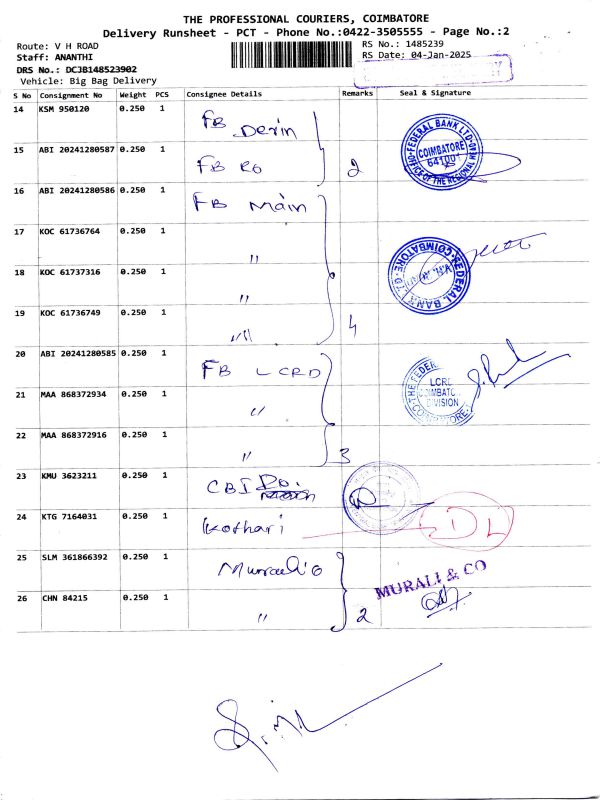 THE PROFESSIONAL COURIERS, COIMBATORE
Delivery Runsheet - PCT - Phone No.:0422-3505555 - Page No.:2
Route: V H ROAD
RS No.: 1485239
Staff: ANANTHI
RS Date: 04-Jan-2025
DRS No.: DCJB148523902
Vehicle: Big Bag Delivery
S No Consignment No Weight PCS Consignee Details Remarks Seal & Signature
14 KSM 950120 0.250 1 FB Derin
15 ABI 20241280587 0.250 1 FB RO 2
FEDERAL BANK LTD COIMBATORE 641001 OFFICE OF THE REGIONAL
16 ABI 20241280586 0.250 1 FB Main
17 KOC 61736764 0.250 1 "
FEDERAL BANK COIMBATORE
18 KOC 61737316 0.250 1 "
19 KOC 61736749 0.250 1 " 4
20 ABI 20241280585 0.250 1 FB LCRD
21 MAA 868372934 0.250 1 "
THE FEDER LCRD COIMBATO DIVISION COIMBATORE
22 MAA 868372916 0.250 1 " 3
23 KMU 3623211 0.250 1 CBI Ro
24 KTG 7164031 0.250 1 Kothari DL
25 SLM 361866392 0.250 1
MURALI & CO
26 CHN 84215 0.250 1 " 2